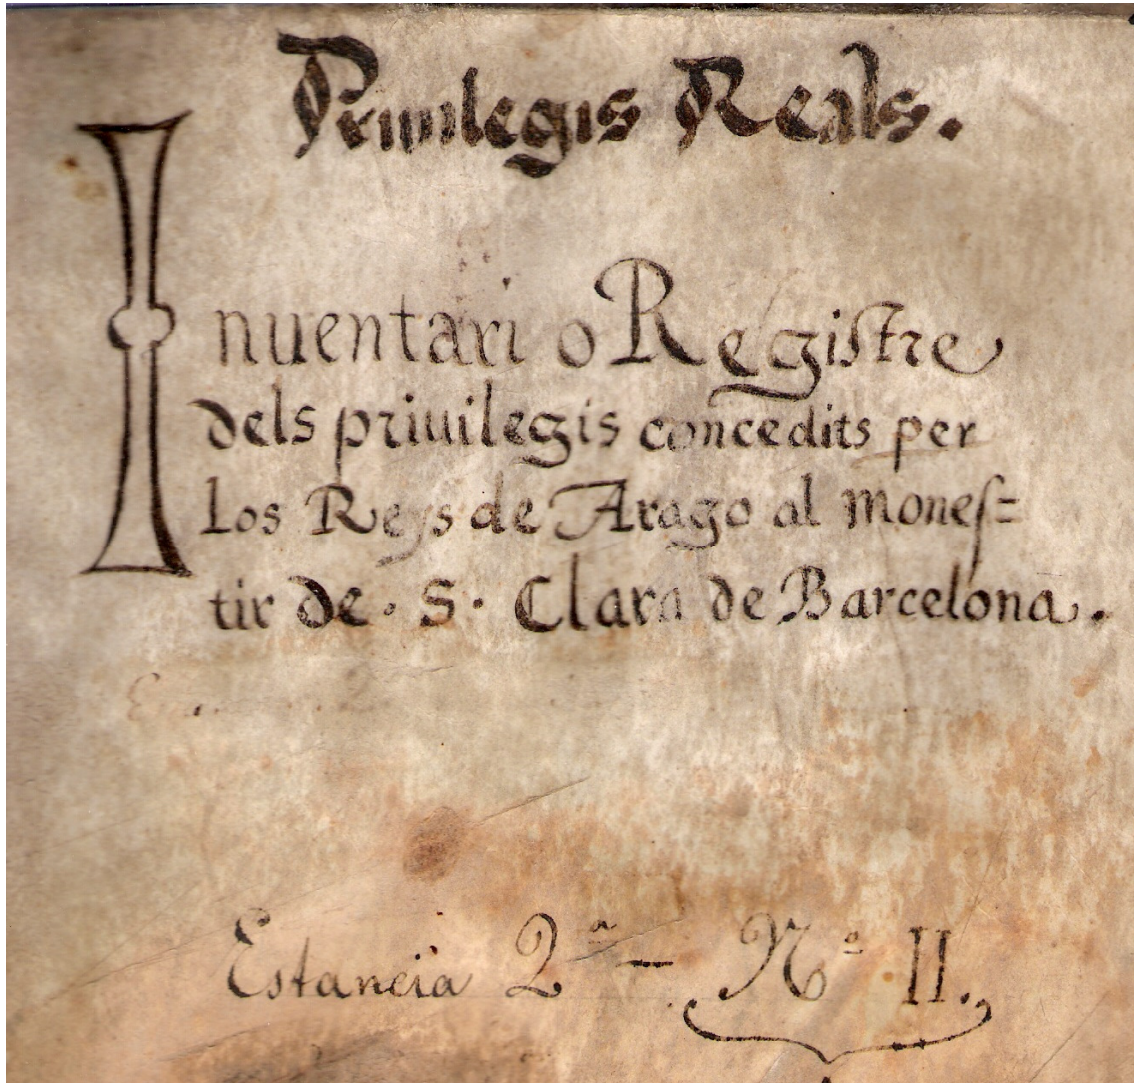 Priuilegis Reals.
Inuentari o Registre
dels priuilegis concedits per
los Reys de Arago al mones=
tir de . S . Clara de Barcelona .
Estancia 2ª – Nº II.